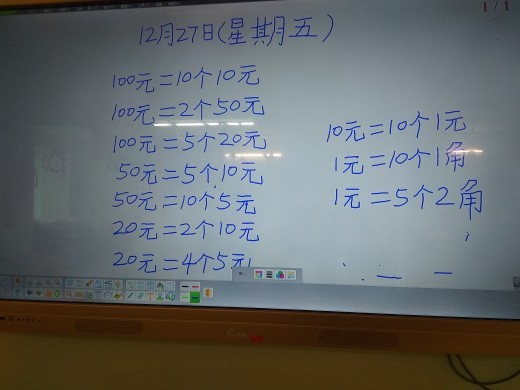 1/1
12月27日(星期五)
100元=10个10元
100元=2个50元
100元=5个20元
50元=5个10元
50元=10个5元
20元=2个10元
20元=4个5元
10元=10个1元
1元=10个1角
1元=5个2角